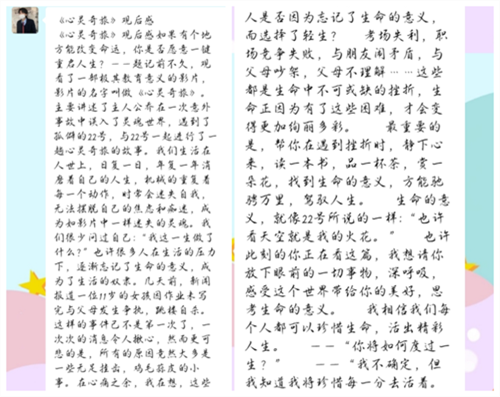 《心灵奇旅》观后感
《心灵奇旅》观后感如果有个地
方能改变命运，你是否愿意一键
重启人生？——题记前不久，观
看了一部极具教育意义的影片，
影片的名字叫做《心灵奇旅》。
主要讲述了主人公乔在一次意外
事故中误入了灵魂世界，遇到了
孤僻的22号，与22号一起进行了一
趟心灵奇旅的故事。我们生活在
人世上，日复一日，年复一年消
磨着自己的人生，机械的重复着
每一个动作，时常会迷失自我，
无法摆脱自己的焦虑和痴迷，成
为如影片中一样迷失的灵魂。我
们很少问过自己：“我这一生做了
什么？”也许很多人在生活的压力
下，逐渐忘记了生命的意义，成
为了生活的奴隶。几天前，新闻
报道一位11岁的女孩因作业未写
完与父母发生争执，跳楼自杀。
这样的事件已不是第一次了，一
次次的消息令人揪心，然而更可
悲的是，所有的原因竟然大多是
一些无足挂齿，鸡毛蒜皮的小
事。在心痛之余，我在想，这些
人是否因为忘记了生命的意义，
而选择了轻生？ 考场失利，职
场竞争失败，与朋友闹矛盾，与
父母吵架，父母不理解……这些
都是生命中不可或缺的挫折，生
命正因为有了这些困难，才会变
得更加绚丽多彩。 最重要的
是，帮你在遇到挫折时，静下心
来，读一本书，品一杯茶，赏一
朵花，找到生命的意义，方能驰
骋万里，驾驭人生。 生命的意
义，就像22号所说的一样：“也许
看天空就是我的火花。” 也许
此刻的你正在看这篇，我想请你
放下眼前的一切事物，深呼吸，
感受这个世界带给你的美好，思
考生命的意义。 我相信我们每
个人都可以珍惜生命，活出精彩
人生。 ——“你将如何度过一
生？” ——“我不确定，但
我知道我将珍惜每一分去活着。